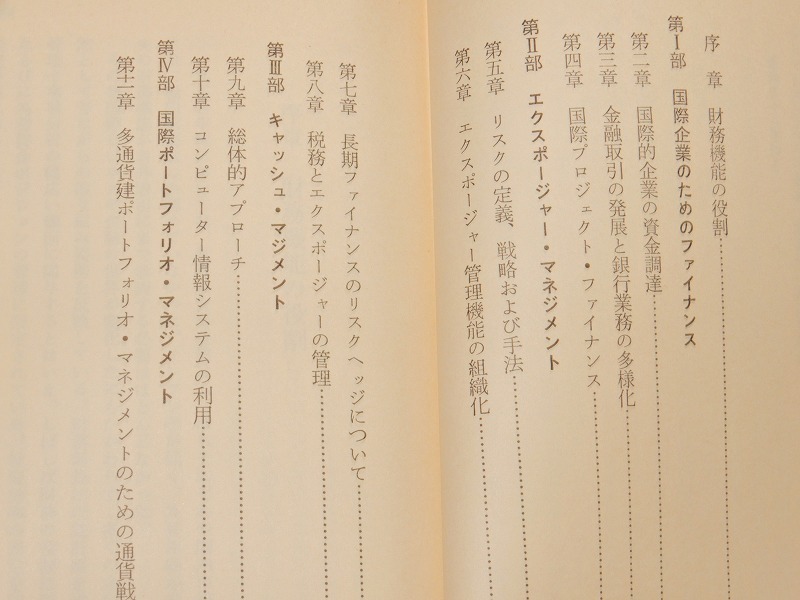 序章　財務機能の役割……………
第Ⅰ部　国際企業のためのファイナンス
第二章　国際的企業の資金調達……………
第三章　金融取引の発展と銀行業務の多様化……………
第四章　国際プロジェクト・ファイナンス……………
第Ⅱ部　エクスポージャー・マネジメント
第五章　リスクの定義、戦略および手法……………
第六章　エクスポージャー管理機能の組織化……………
第七章　長期ファイナンスのリスクヘッジについて……………
第八章　税務とエクスポージャーの管理……………
第Ⅲ部　キャッシュ・マジメント
第九章　総体的アプローチ……………
第十章　コンピューター情報システムの利用……………
第Ⅳ部　国際ポートフォリオ・マネジメント
第十一章　多通貨建ポートフォリオ・マネジメントのための通貨戦